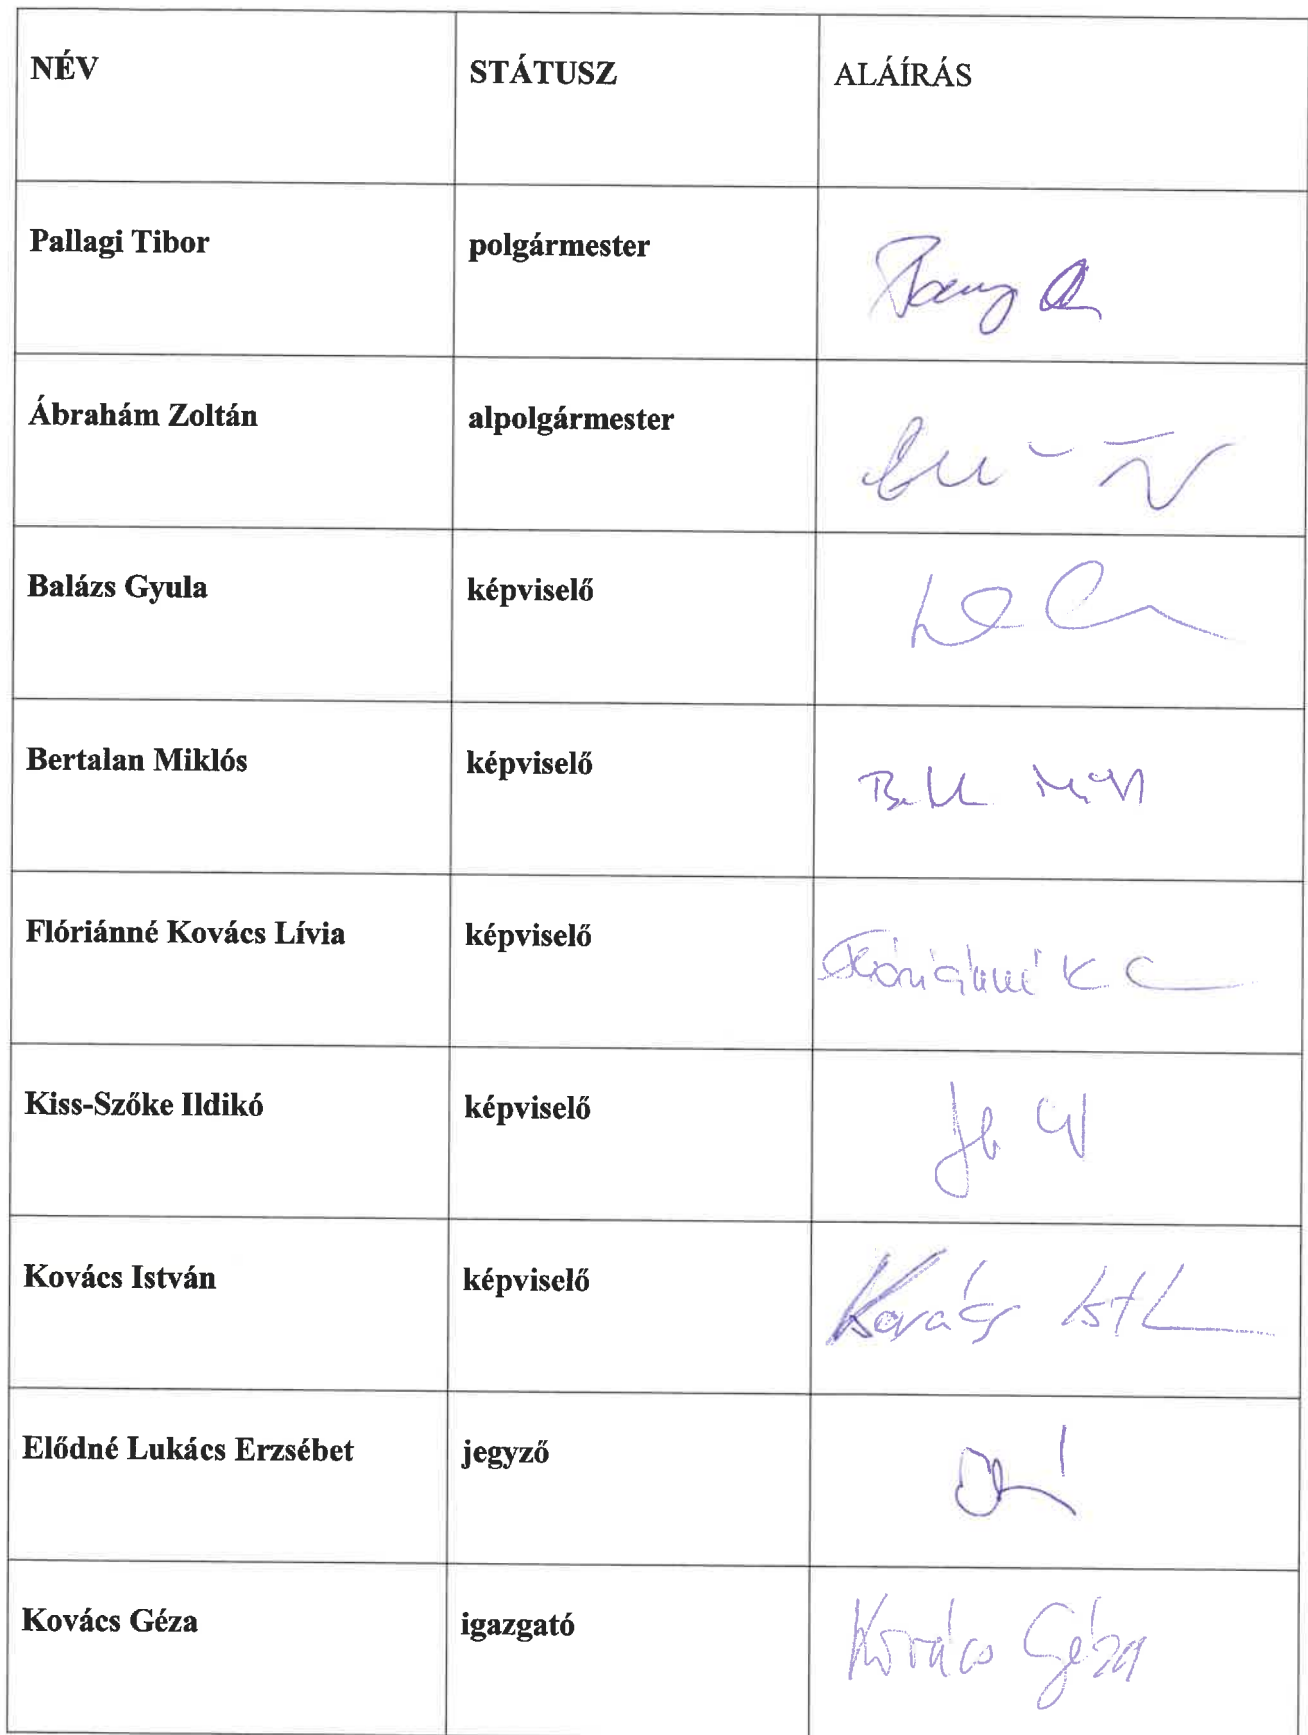 NÉV STÁTUSZ ALÁÍRÁS
Pallagi Tibor polgármester
Ábrahám Zoltán alpolgármester
Balázs Gyula képviselő
Bertalan Miklós képviselő
Flóriánné Kovács Lívia képviselő Flóriánné K
Kiss-Szőke Ildikó képviselő
Kovács István képviselő Kovács
Elődné Lukács Erzsébet jegyző
Kovács Géza igazgató Kovács Géza